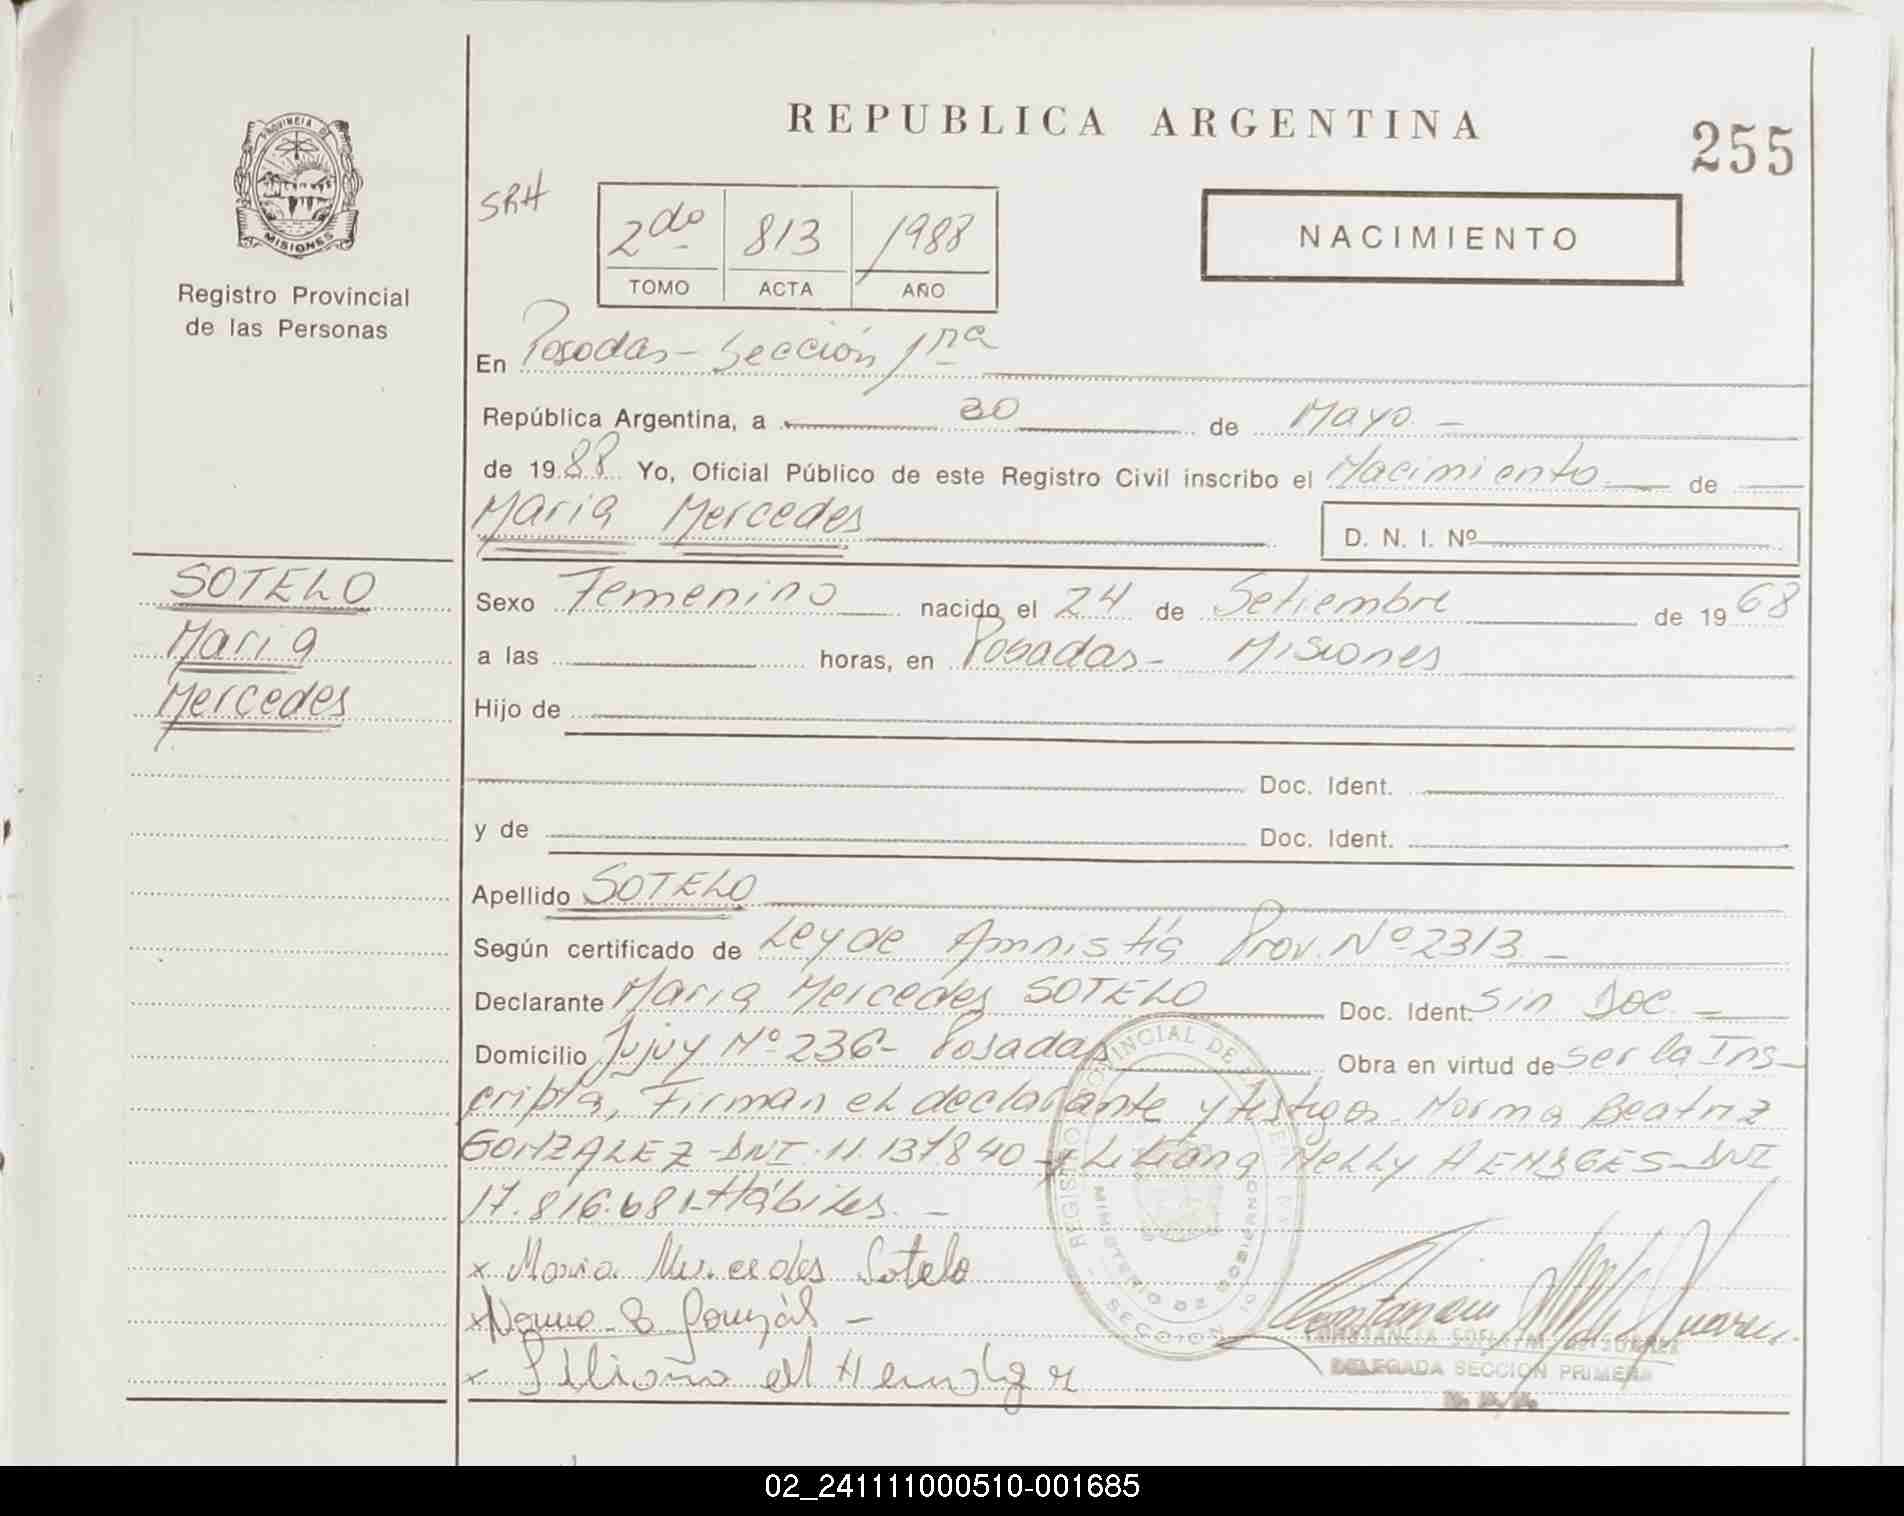 REPUBLICA ARGENTINA
255
PROVINCIA DE
MISIONES
Registro Provincial
de las Personas
SRH
2do 813 1988
TOMO ACTA AÑO
NACIMIENTO
En Posadas - Sección 1ra
República Argentina, a 30 de Mayo. -
de 1988 Yo, Oficial Público de este Registro Civil inscribo el Nacimiento de
Maria Mercedes D. N. I. Nº
SOTELO
Maria
Mercedes
Sexo Femenino nacido el 24 de Setiembre de 1968
a las horas, en Posadas - Misiones
Hijo de
Doc. Ident.
y de Doc. Ident.
Apellido SOTELO
Según certificado de Ley de Amnistía Prov. Nº 2313. -
Declarante Maria Mercedes SOTELO Doc. Ident. Sin Doc. -
Domicilio Jujuy Nº 236 - Posadas Obra en virtud de ser la Ins-
cripta, Firman el declarante y testigos Norma Beatriz
GONZALEZ - DNI. 11.137.840 - y Liliana Nelly HENDGES - DNI
17.816.681 - Hábiles. -
x Maria Mercedes Sotelo
x Norma B Gonzál -
x Liliana
REGISTRO PROVINCIAL DE
MINISTERIO DE GOBIERNO
SECCION
DELEGADA SECCION PRIMERA
02_241111000510-001685